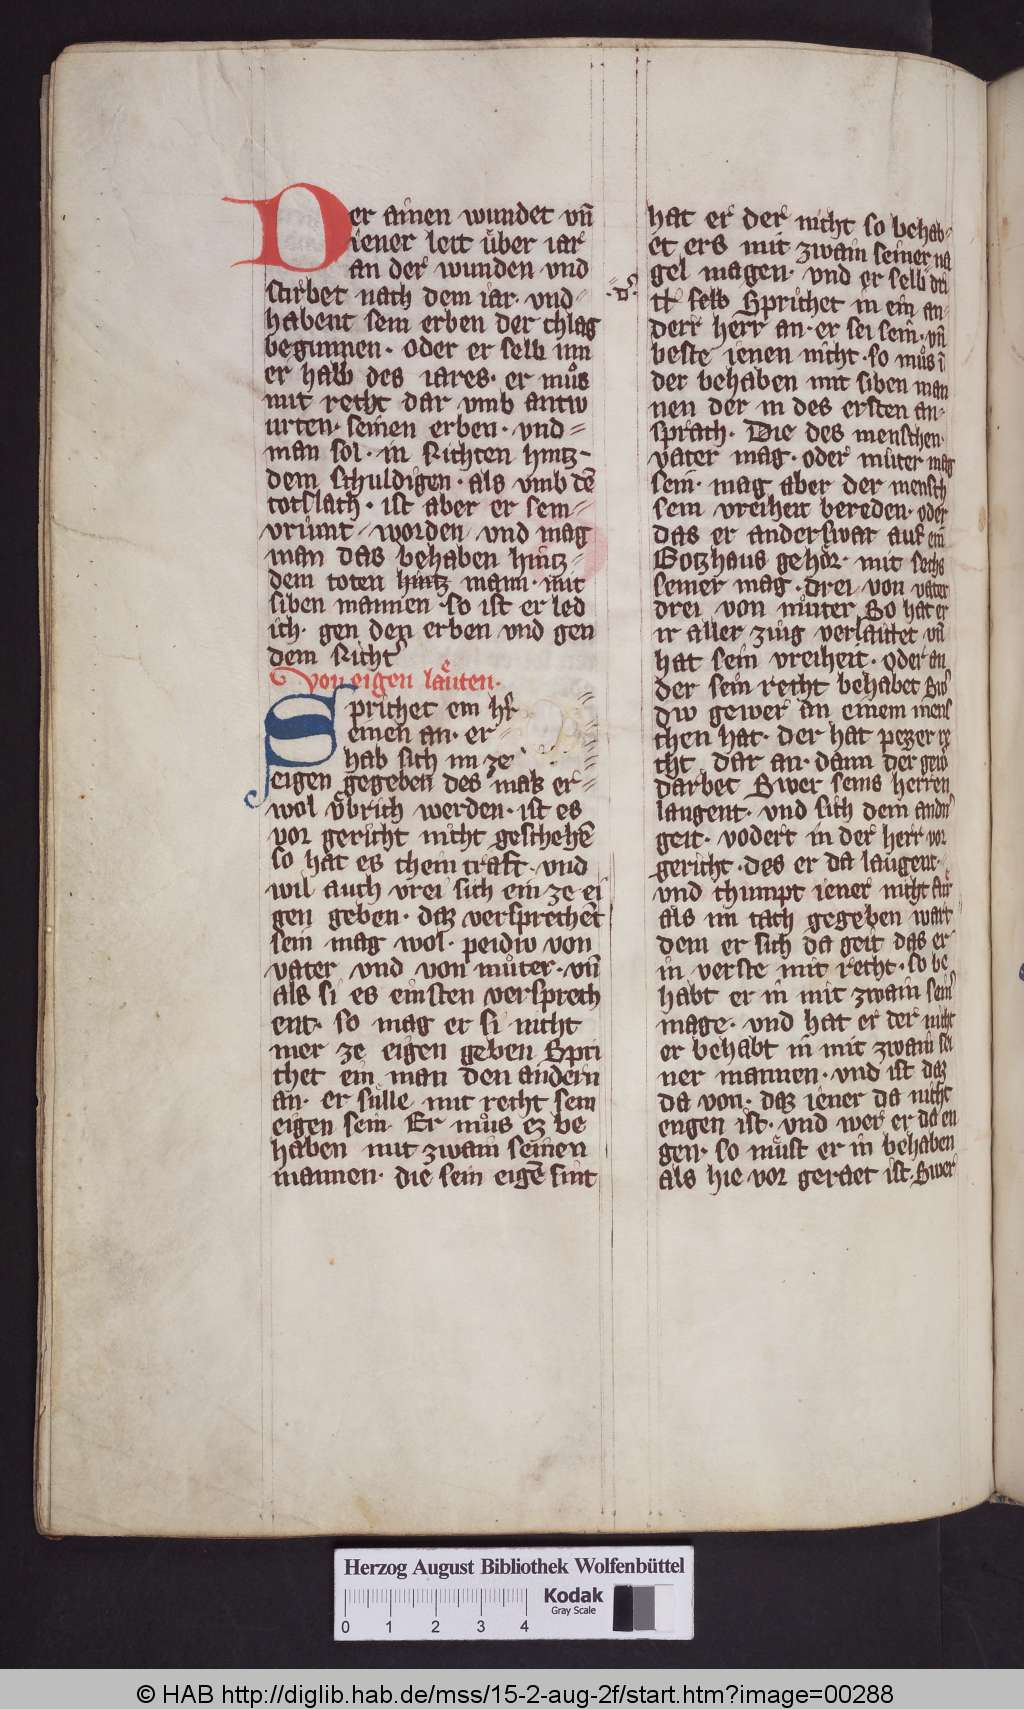 Der ainen wundet vn̄
iener lett v̊ber iar
an der wunden vnd
stirbet nach dem iar· vnd
habent sein erben der chlag
begunnen· oder er selb inn
er halb des iares· er mu̍s
mit recht dar vmb antw
urten· seinen erben· vnd
man sol· in Richten hintz
dem schuldigen· als vmb dē
totslach· ist aber er sein
vrůnt worden vnd mag
man das behaben hintz
dem toten hintz mann· mit
siben mannen· so ist er led
ich· gen den erben vnd gen
dem Richt
Von eigen laůten·
Sprichet ein hr
einen an· er
hab sich im ze
eigen gegeben des mak er
wol v̊brich werden· ist es
vor gericht nicht geschehē
so hat es chein craft· vnd
wil auch vrei sich ein ze ei
gen geben· daz versprechēt
sein mag wol· peidiv von
vater vnd von můter· vn̄
als si es einsten versprech
ent· so mag er si nicht
mer ze eigen geben Spri
chet ein man den andern
an· er sůlle mit recht sein
eigen sein· Er můs ez be
haben mit zwain seinen
mannen· die sein eigē sint
hat er der nicht so behab
et ers mit zwain seiner na
gel magen· vnd er selb dri
selb Sprichet in ein an
derr herr an· er sei sein· vn̄
beste ienen nicht· so můs ī
der behaben mit siben man
nen der in des ersten an
sprach· Die des menschen
vater mag· oder můter mag
sein· mag aber der mensch
sein vreiheit bereden· oder
das er anderswar auf ein
Gotzhaus gehȯr· mit sechs
seiner mag· drei von vater
drei von můter So hat er
ir aller zůig verlaůtet vn̄
hat sein vreiheit· oder an
der sein recht behabet Swes
div gewer an einem mens
chen hat· der hat pezzer re
cht dar an· dann der gew
darbet Swer seins herren
laugent· vnd sich dem andn
geit· vodert in der herr vor
gericht· des er da laugent·
vnd chumpt iener nicht fůr
als im tach gegeben wart
dem er sich da geit das er
in verste mit recht· so be
habt er in mit zwain seins
mage· vnd hat er der nicht
er behabt in mit zwain sei
ner mannen· vnd ist daz
da von· daz iener da nicht
engen ist· vnd wer er da en
gen· so můst er in behaben
als hie vor geraet ist· Swer
Herzog August Bibliothek Wolfenbüttel
0 1 2 3 4
Kodak
Gray Scale
© HAB http://diglib.hab.de/mss/15-2-aug-2f/start.htm?image=00288